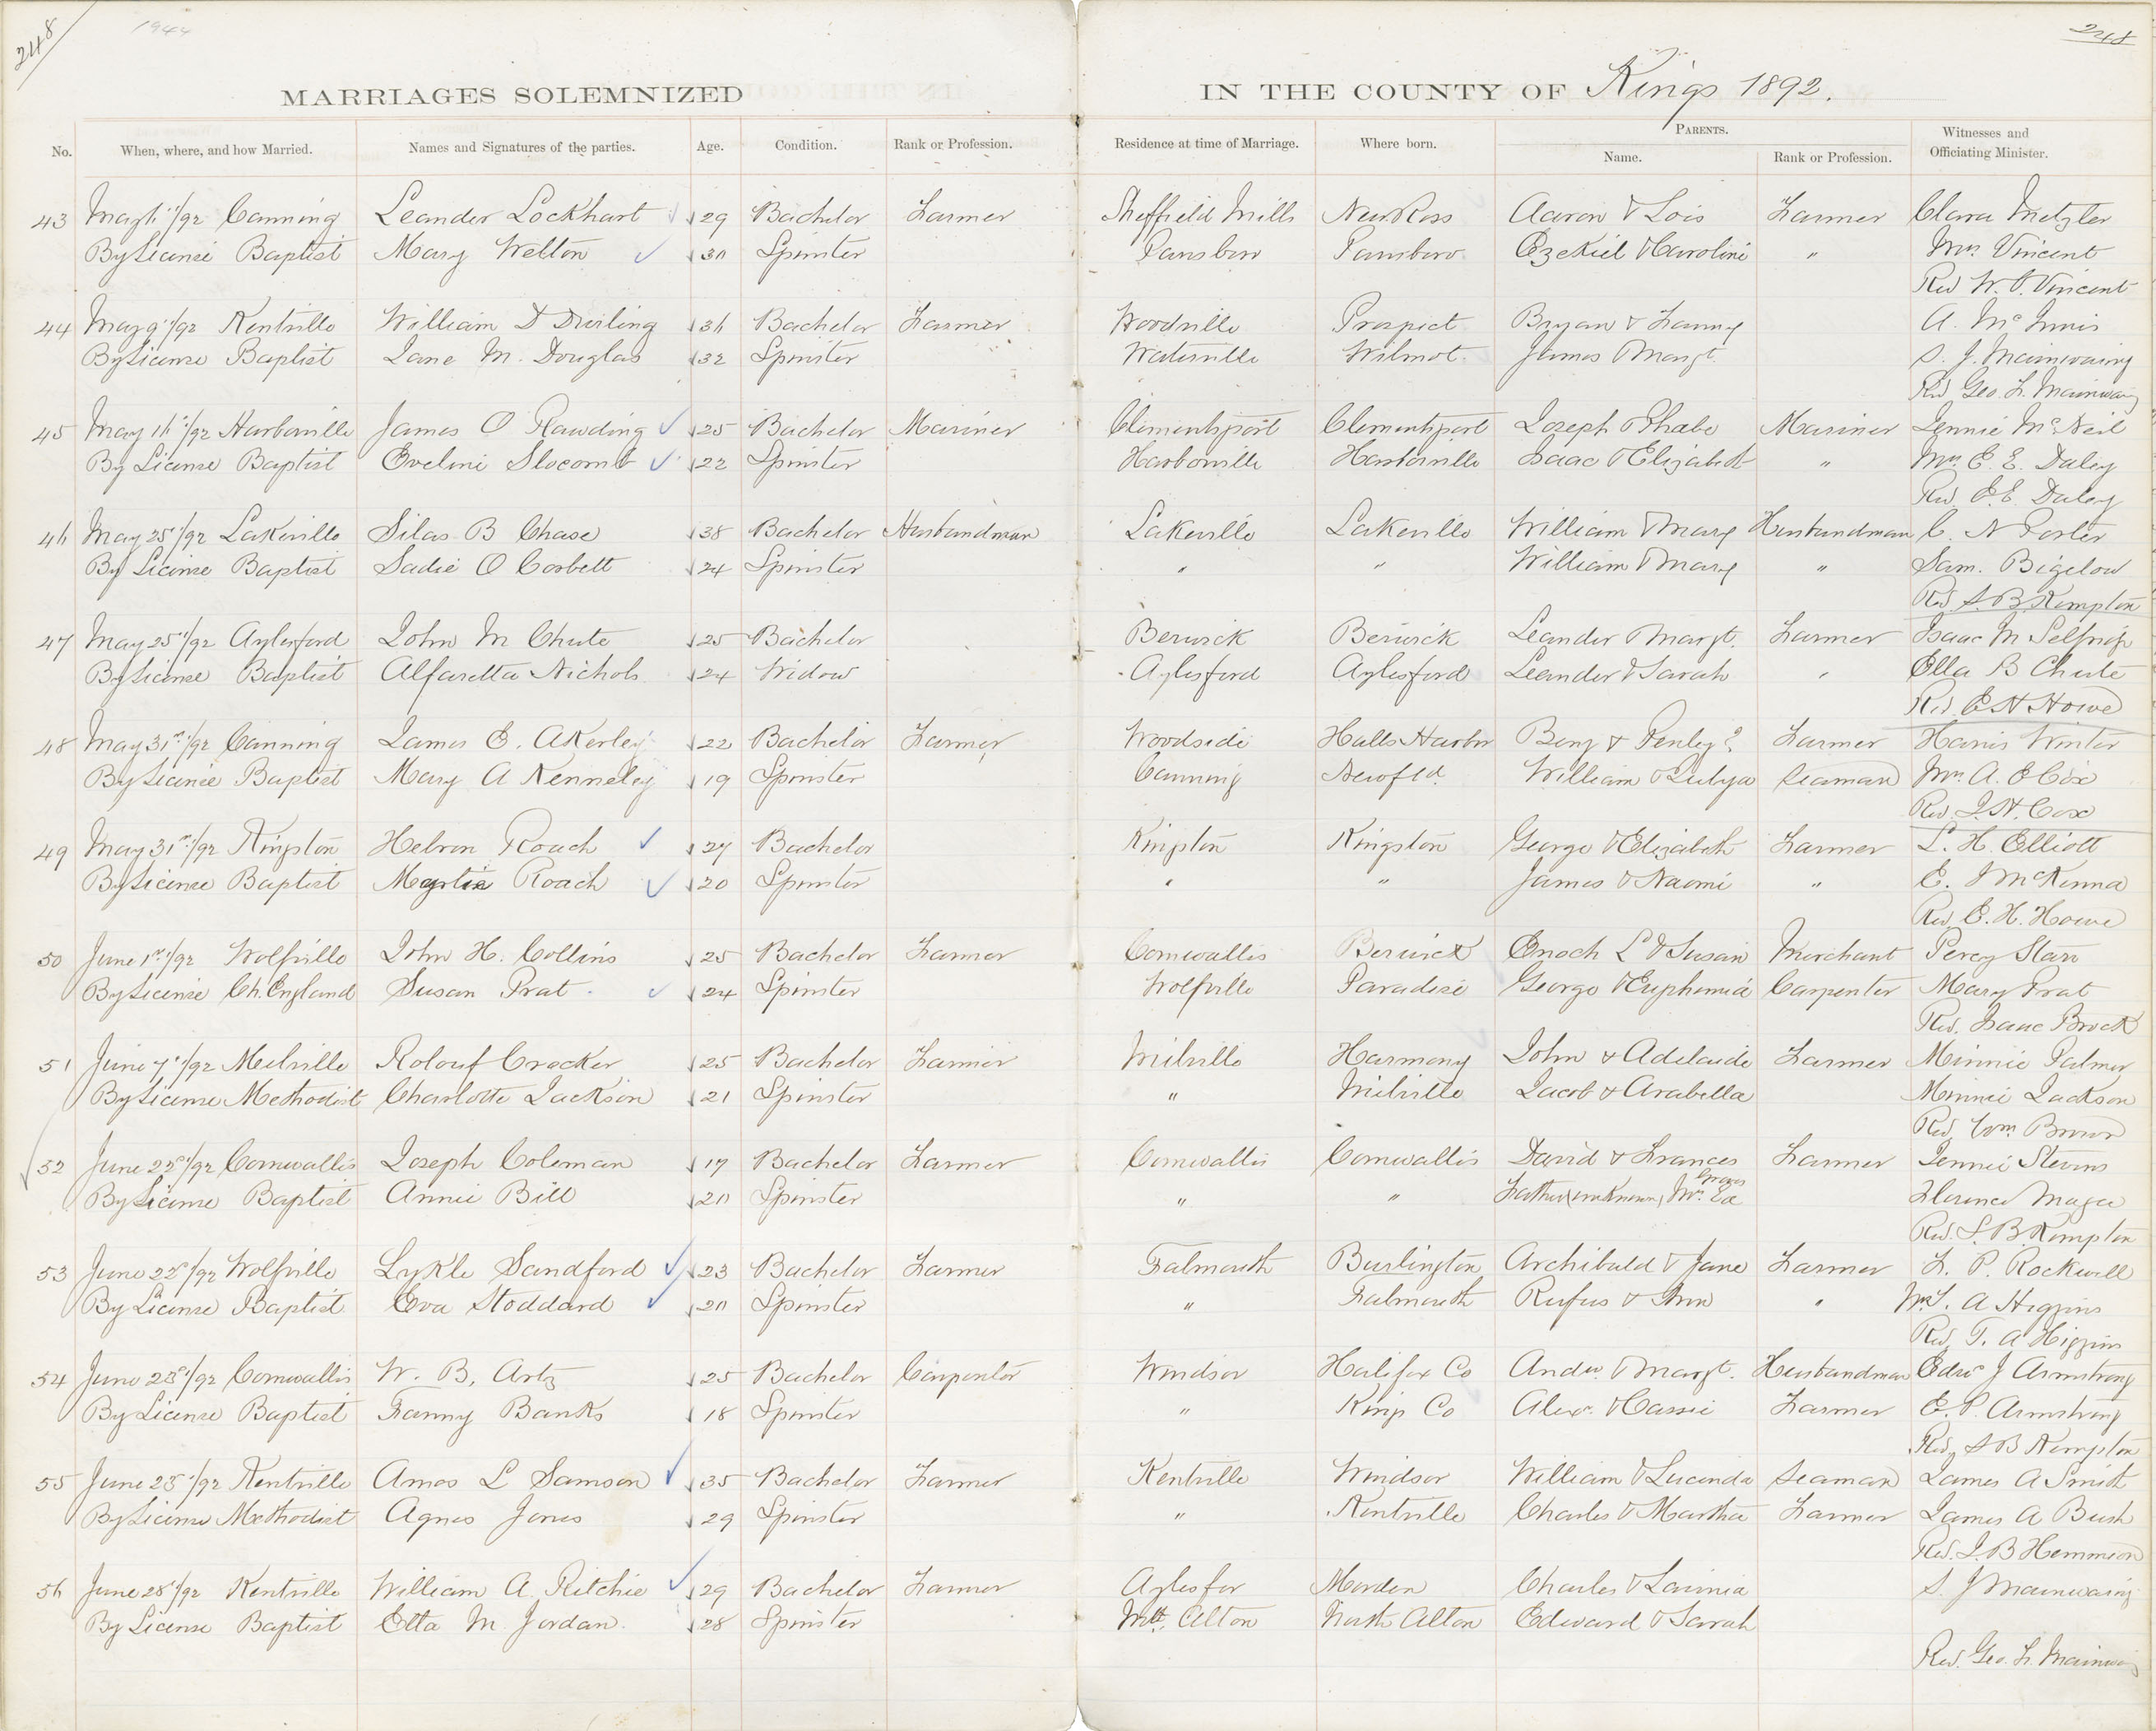 248 1944 248
MARRIAGES SOLEMNIZED IN THE COUNTY OF Kings 1892.
No. When, where, and how Married. Names and Signatures of the parties. Age. Condition. Rank or Profession. Residence at time of Marriage. Where born. PARENTS. Name. Rank or Profession. Witnesses and Officiating Minister.
43 May 1/92 Canning Leander Lockhart 29 Bachelor Farmer Sheffield Mills New Ross Aaron & Lois Farmer Clara Metzler
By License Baptist Mary Welton 30 Spinster Parrsboro Parrsboro Ezekiel & Caroline " Mrs. Vincent
Rev W. . Vincent
44 May 9"/92 Kentville William D Durling 36 Bachelor Farmer Woodville Prospect Bryan & Fanny A. McInnis
By License Baptist Jane M. Douglas 32 Spinster Waterville Wilmot. James & Margt. S. J. Mainwaring
Rev Geo. L. Mainwaring
45 May 16"/92 Harborville James O Rawding 25 Bachelor Mariner Clementsport Clementsport Joseph & Phebe Mariner Jennie McNeil
By License Baptist Eveline Slocomb 22 Spinster Harborville Harborville Isaac & Elizabeth " Mrs. E. E. Daley
Rev. E. E Daley
46 May 25"/92 Lakeville Silas B Chase 38 Bachelor Husbandman Lakeville Lakeville William & Mary Husbandman C. N Porter
By License Baptist Sadie O Corbett 24 Spinster " " William & Mary " Sam. Bigelow
Rev. S. B. Kempton
47 May 25"/92 Aylesford John M Chute 25 Bachelor Berwick Berwick Leander & Margt. Farmer Isaac M Selfridge
By License Baptist Alfaretta Nichols 24 Widow Aylesford Aylesford Leander & Sarah " Ella B Chute
Rev. E H Howe
48 May 31st/92 Canning James E. Akerley 22 Bachelor Farmer Woodside Halls Harbor Benj & Penley? Farmer Harris Winter
By License Baptist Mary A Kenneley 19 Spinster Canning Newfld. William & Seaman Mrs. A. E Cox
Rev. J. H. Cox
49 May 31st/92 Kingston Hebron Roach 27 Bachelor Kingston Kingston George & Elizabeth Farmer L. H. Elliott
By License Baptist Roach 20 Spinster " " James & Naomi " E. J McKenna
Rev E. H. Howe
50 June 1st/92 Wolfville John H. Collins 25 Bachelor Farmer Cornwallis Berwick Enoch L & Susan Merchant Percy Starr
By License Ch. England Susan Prat. 24 Spinster Wolfville Paradise George & Euphemia Carpenter Mary Prat
Rev. Isaac Brock
51 June 7"/92 Melville Rolouf Crocker 25 Bachelor Farmer Milville Harmony John & Adelaide Farmer Minnie Palmer
By License Methodist Charlotte Jackson 21 Spinster " Milville Jacob & Arabella Minnie Jackson
Rev Wm. Brown
52 June 22"/92 Cornwallis Joseph Coleman 17 Bachelor Farmer Cornwallis Cornwallis David & Frances Farmer Jennie Stevens
By License Baptist Annie Bill 20 Spinster " " Father (unknown) Mrs. Florence Magee
Rev. S. B Kempton
53 June 22"/92 Wolfville Lykle Sandford 23 Bachelor Farmer Falmouth Burlington Archibald & Jane Farmer L. P. Rockwell
By License Baptist Eva Stoddard 20 Spinster " Falmouth Rufus & Ann " Mrs. A Higgins
Rev. T. A Higgins
54 June 23"/92 Cornwallis W. B, Artz 25 Bachelor Carpenter Windsor Halifax Co Andw. & Margt. Husbandman Edw J Armstrong
By License Baptist Fanny Banks 18 Spinster " Kings Co Alex. & Cassie Farmer E. P. Armstrong
Rev. S B Kempton
55 June 28"/92 Kentville Amos L Samson 35 Bachelor Farmer Kentville Windsor William & Lucinda Seaman James A Smith
By License Methodist Agnes Jones 29 Spinster " Kentville Charles & Martha Farmer James A Bush
Rev. J. B Hemmeon
56 June 28"/92 Kentville William A. Ritchie 29 Bachelor Farmer Aylesfor Morden Charles & Lavinia S. J Mainwaring
By License Baptist Etta M Jordan. 28 Spinster Nth. Alton North Alton Edward & Sarah
Rev. Geo. L. Mainwaring